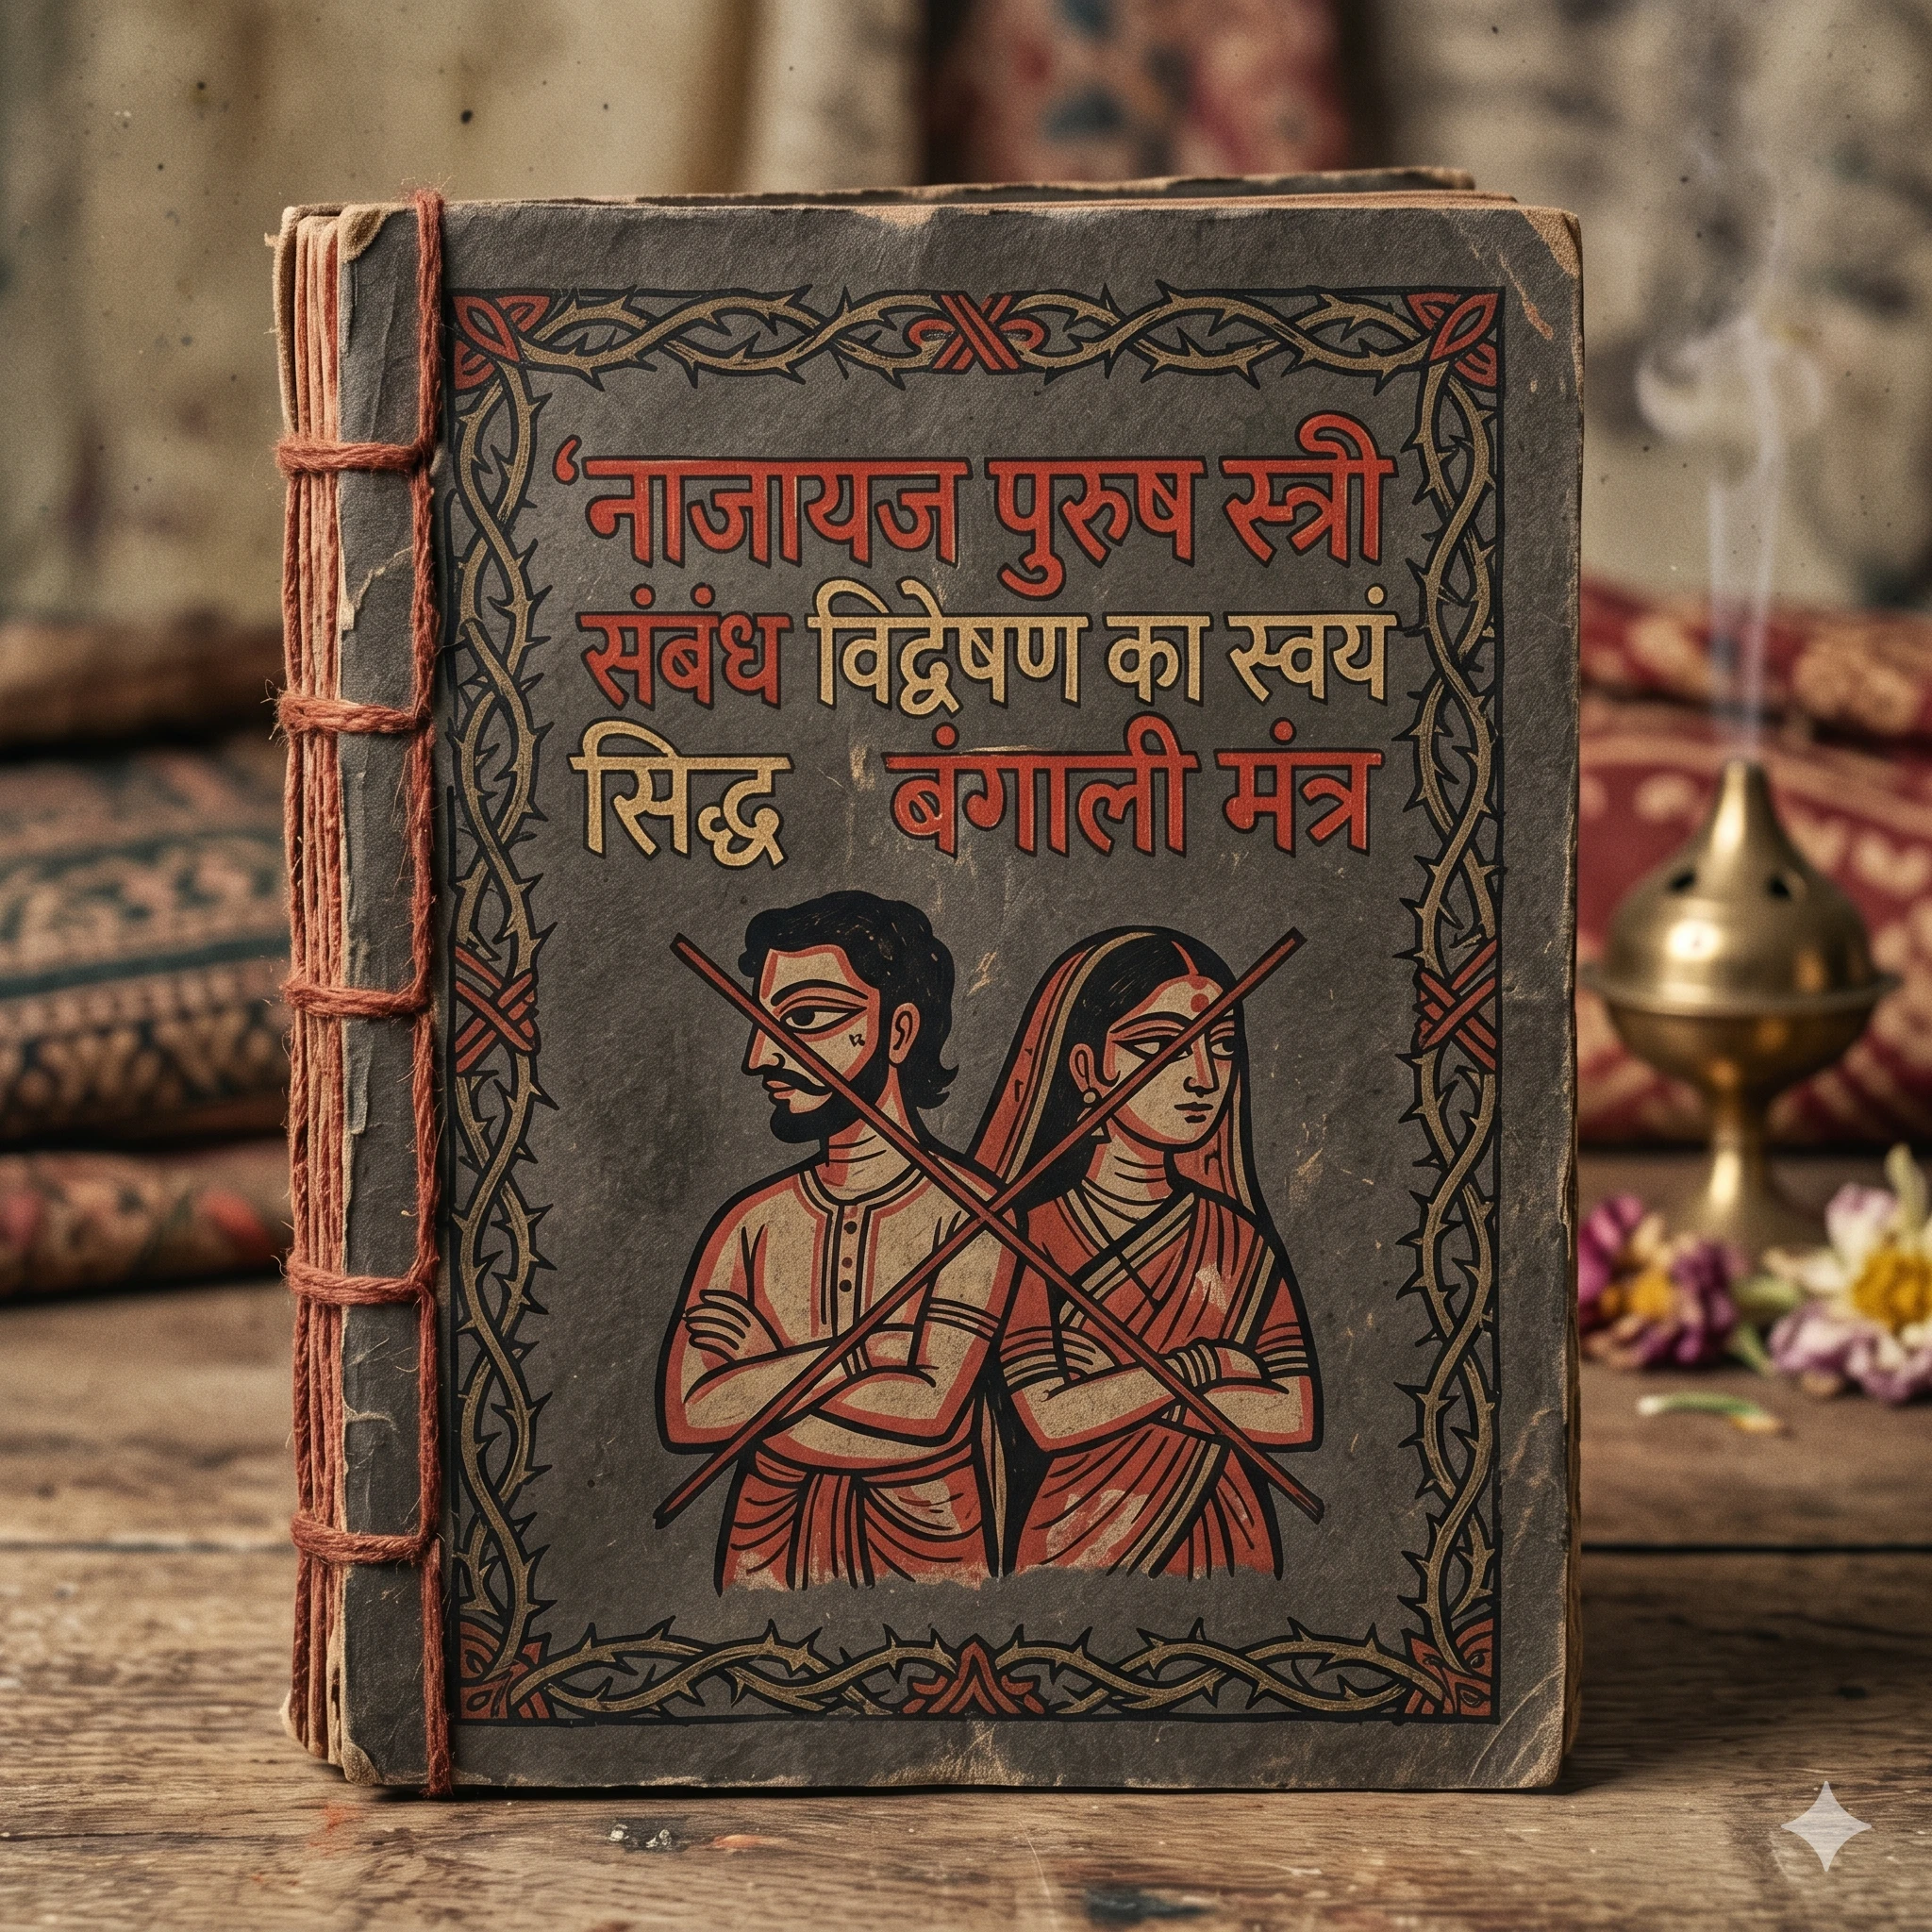 ‘नाजायज पुरुष स्त्री
संबंध विद्वेषण का स्वयं
सिद्ध बंगाली मंत्र